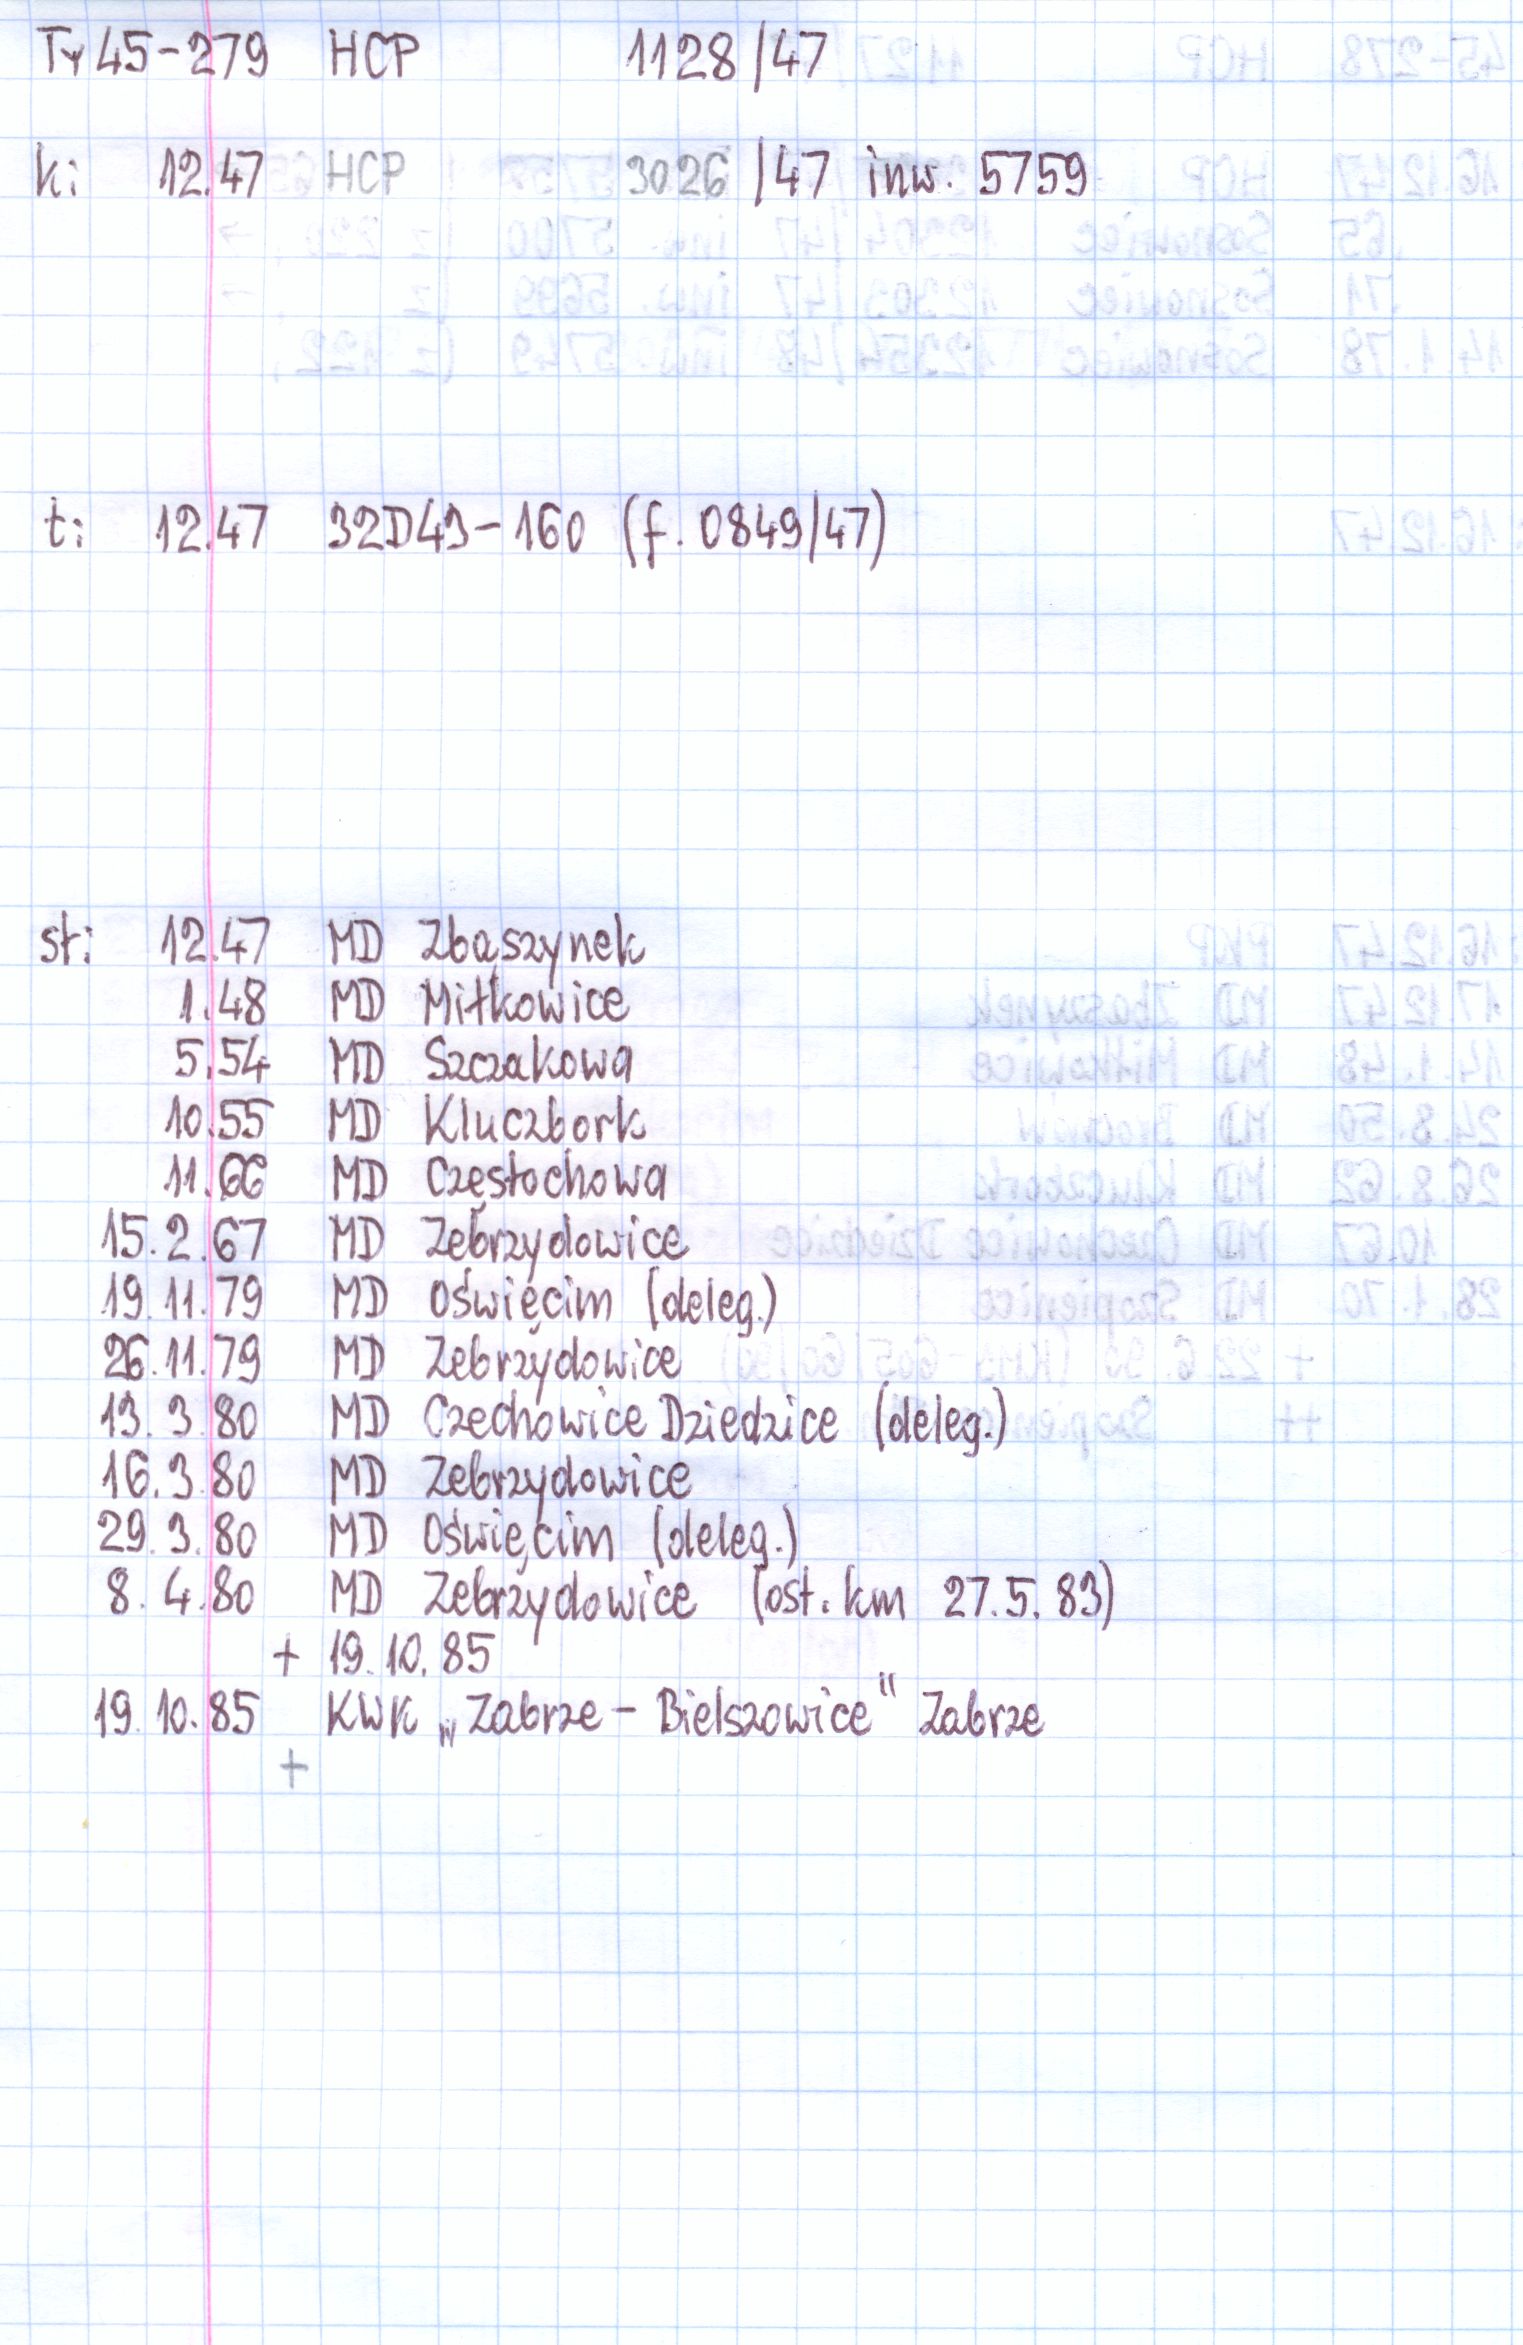 Ty45-279 HCP 1128/47
k: 12.47 HCP 3026/47 inw. 5759
t: 12.47 32D43-160 (f. 0849/47)
st: 12.47 MD Zbąszynek
1.48 MD Miłkowice
5.54 MD Szczakowa
10.55 MD Kluczbork
11.66 MD Częstochowa
15.2.67 MD Zebrzydowice
19.11.79 MD Oświęcim (deleg.)
26.11.79 MD Zebrzydowice
13.3.80 MD Czechowice Dziedzice (deleg.)
16.3.80 MD Zebrzydowice
29.3.80 MD Oświęcim (deleg.)
8.4.80 MD Zebrzydowice (ost. km 27.5.83)
+ 19.10.85
19.10.85 KWK „Zabrze - Bielszowice" Zabrze
+